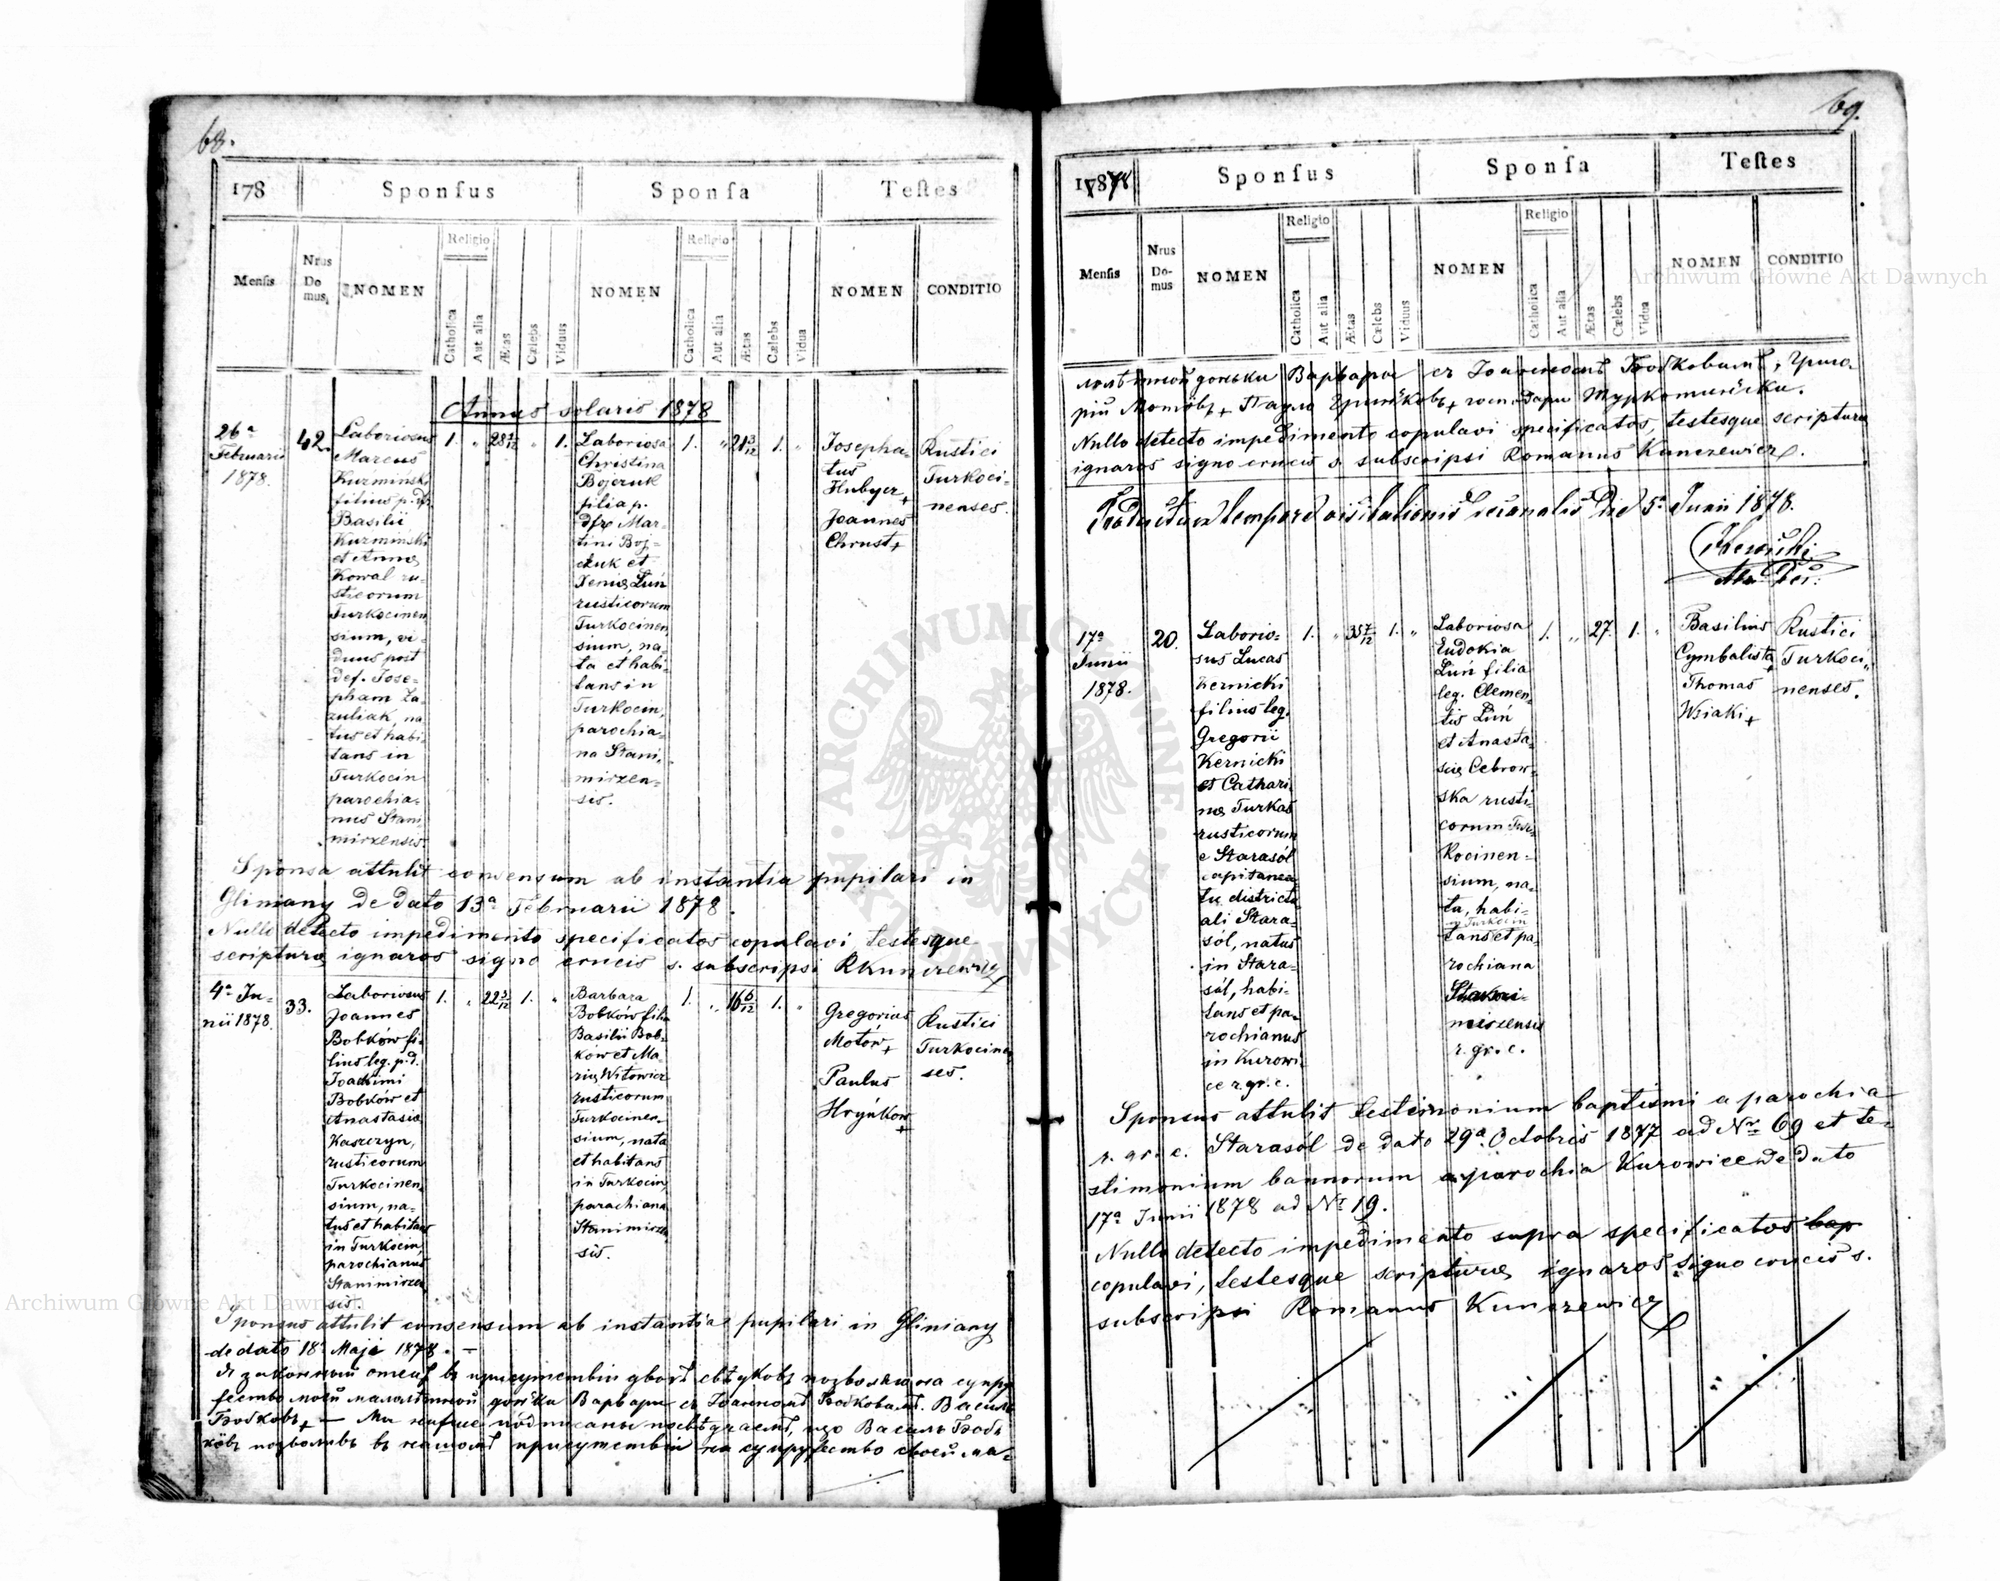 68.
178
Sponſus
Sponſa
Teſtes
Menſis
Nrus Do mus,
NOMEN
Religio
Catholica
Aut alia
Ætas
Cælebs
Viduus
NOMEN
Religio
Catholica
Aut alia
Ætas
Cælebs
Vidua
NOMEN
CONDITIO
Annus solaris 1878
26ª
Februarii
1878.
42.
Laboriosus
Marcus
Kuzminski
filius p. df.
Basilii
Kuzminski
et Annæ
Kowal ru-
sticorum
Turkocinen
sium, vi-
duus post
def. Jose-
pham Za-
zuliak, na
tus et habi-
tans in
Turkocin
parochia-
nus Stani
mirzensis.
1.
"
28 7/12
"
1.
Laboriosa
Christina
Bojczuk
filia p.
dfæ Mar-
tini Boj-
czuk et
Xeniæ Łuń
rusticorum
Turkocinen
sium, na
ta et habi-
tans in
Turkocin,
parochia-
na Stani-
mirzen-
sis.
1.
"
21 3/12
1.
"
Josepha-
tus
Hubycz +
Joannes
Chrust +
Rustici
Turkoci-
nenses.
Sponsa attulit consensum ab instantia pupilari in
Gliniany de dato 13ª Februarii 1878.
Nullo detecto impedimento specificatos copulavi, testesque
scripturæ ignaros signo crucis s. subscripsi RKunczewicz
4ª Ju-
nii 1878
33.
Laboriosus
Joannes
Bobków fi-
lius leg. p. d.
Joachimi
Bobków et
Anastasiæ
Kaszczyn,
rusticorum
Turkocinen
sium, na-
tus et habitans
in Turkocin,
parochianus
Stanimirzen
sis.
1.
"
22 5/12
1.
"
Barbara
Bobków filia
Basilii Bob-
kow et Ma-
riæ Witowicz
rusticorum
Turkocinen-
sium, nata
et habitans
in Turkocin,
parachiana
Stanimirzen
sis.
1.
"
16 6/12
1.
"
Gregorius
Motów +
Paulus
Hryńkow
+
Rustici
Turkocinen
ses.
Sponsus attulit consensum ab instantia pupilari in Gliniany
de dato 18ª Maji 1878. –
Я законный отецъ въ присутствіи двохъ свѣдковъ позволяю на супру
жество моѣй малолѣтной доньки Варвары съ Іоанномъ Бобковымъ. Василь
Бобковъ + — Мы нижше подписаны посвѣдчаемъ, що Василь Боб
ковъ позволивъ въ нашомъ присутствіи на супружество своѣй ма-
69.
1878
Sponſus
Sponſa
Teſtes
Menſis
Nrus Do- mus
NOMEN
Religio
Catholica
Aut alia
Ætas
Cælebs
Viduus
NOMEN
Religio
Catholica
Aut alia
Ætas
Cælebs
Vidua
NOMEN
CONDITIO
лолѣтной доньки Варвары съ Іоанномъ Бобковымъ, Григо
рій Мотовъ + Павло Гриньковъ + господари Туркотиньски.
Nullo detecto impedimento copulavi specificatos, testesque scripturæ
ignaros signo crucis s. subscripsi Romanus Kunczewicz.
Productum tempore visitationis decanalis Die 5ª Junii 1878.
17ª
Junii
1878.
20.
Laborio-
sus Lucas
Kernicki
filius leg.
Gregorii
Kernicki
et Cathari
næ Turkas
rusticorum
e Starasól
capitanea
tu districtu
ali Stara-
sól, natus
in Stara-
sól, habi-
tans et pa-
rochianus
in Kurowi-
ce r. gr. c.
1.
"
35 7/12
1.
"
Laboriosa
Eudokia
Łuń filia
leg. Clemen-
tis Łuń
et Anasta-
siæ Cebrow-
ska rusti-
corum Tur-
kocinen-
sium, na-
ta, habi-
in Turkocin
tans et pa-
rochiana
Stani-
mirzensis
r. gr. c.
1.
"
27.
1.
"
Basilius
Cymbalista
+
Thomas
Wsiaki +
Rustici
Turkoci-
nenses.
Sponsus attulit testimonium baptismi a parochia
r. gr. c. Starasól de dato 29ª Octobris 1877 ad Nr 69 et te-
stimonium bannorum a parochia Kurowice de dato
17ª Junii 1878 ad Nr 19.
Nullo detecto impedimento supra specificatos bap
copulavi, testesque scripturæ ignaros signo crucis s.
subscripsi Romanus Kunczewicz
Archiwum Główne Akt Dawnych
Archiwum Główne Akt Dawnych
ARCHIWUM GŁÓWNE AKT DAWNYCH